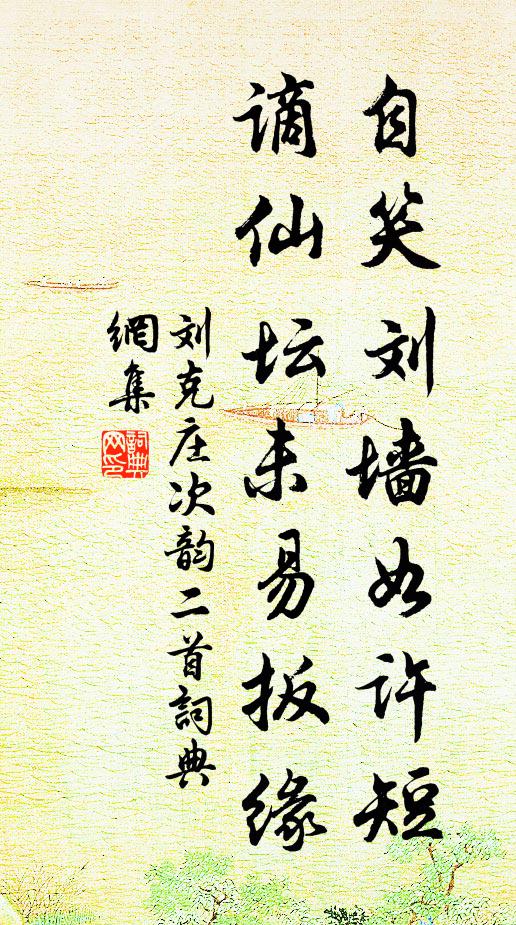 自笑刘墙如许短
谪仙坛未易扳缘
刘克庄次韵二首詞典
網集
詞典
网印